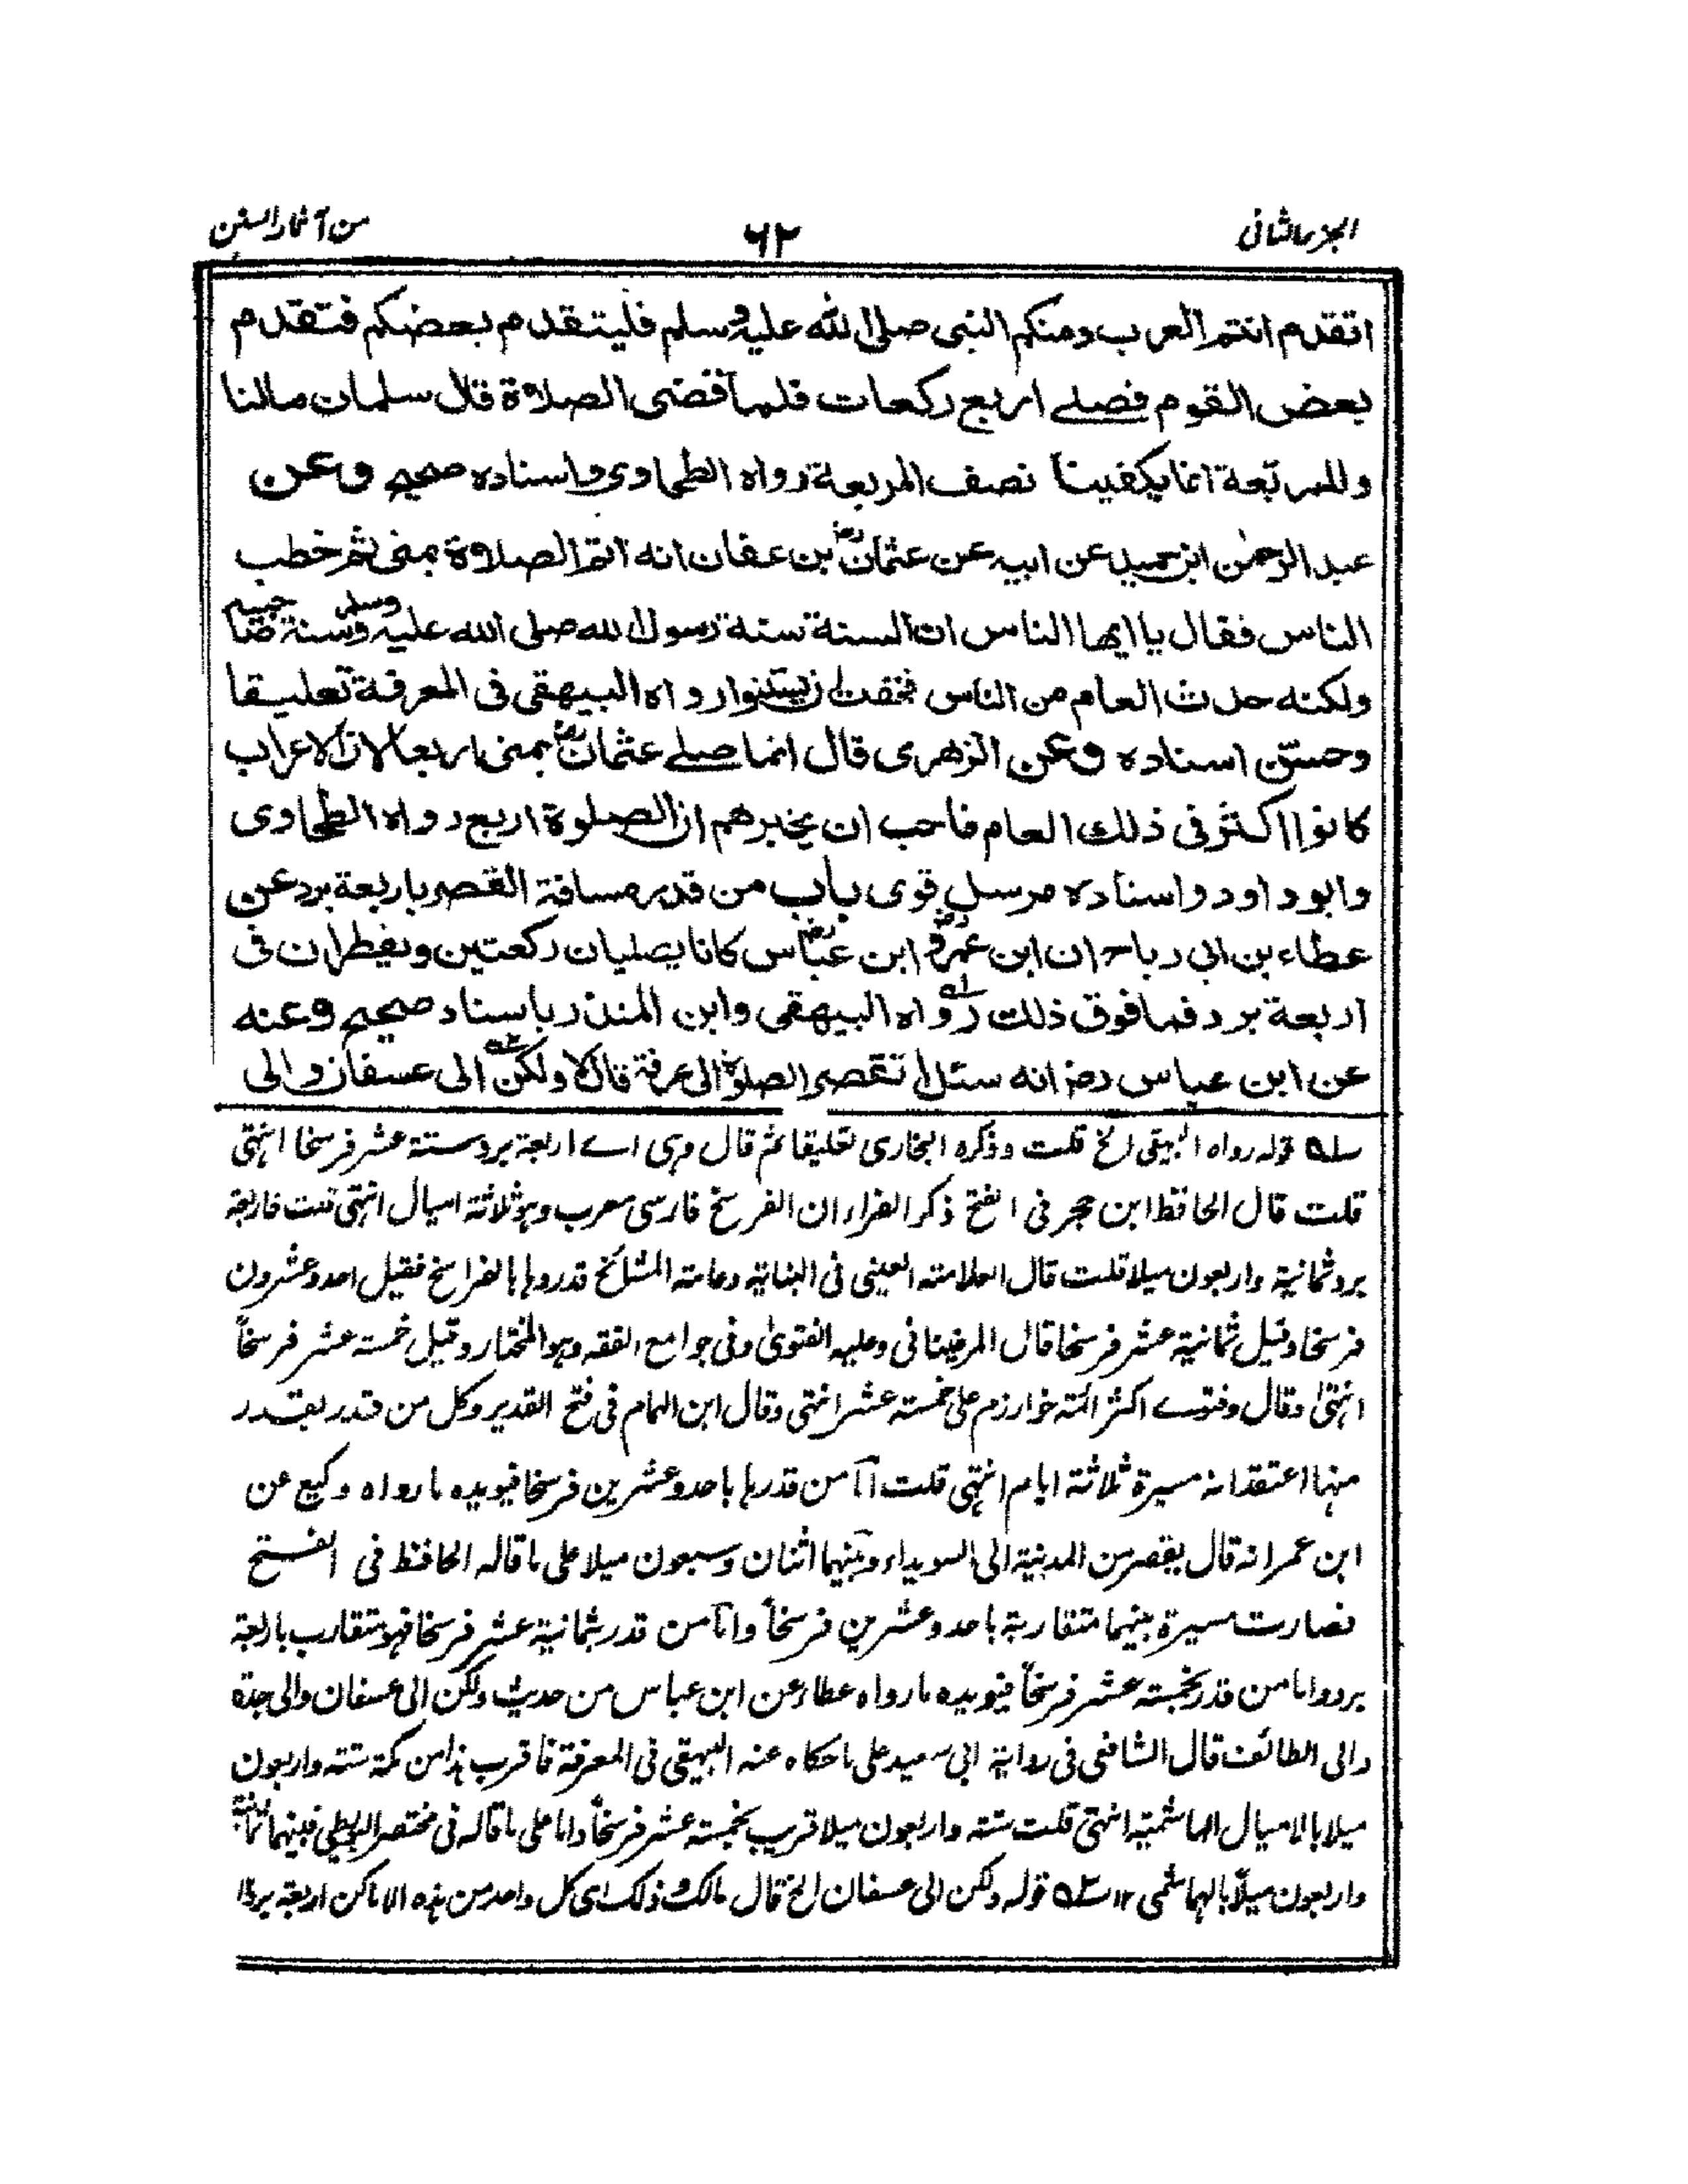 الجزء الثانی
۶۲
من آثار السنن
اتقدم انتم العرب ومنکم النبی صلی الله علیه وسلم فلیتقدم بعضکم فتقدم
بعض القوم فصلے اربع رکعات فلما قضی الصلاة قال سلمان مالنا
وللمربعة انما یکفینا نصف المربعة رواه الطحاوی واسناده صحیح وعن
عبد الرحمٰن ابن حمید عن ابیه عن عثمان رض بن عفان انه اتم الصلاة بمنی ثم خطب
الناس فقال یا ایها الناس ان السنة سنة رسول الله صلی الله علیه وسلم وسنة صاحبیه
ولکنه حدث العام من الناس فخفت ان یستنوا رواه البیهقی فی المعرفة تعلیقا
وحسّن اسناده وعن الزهری قال انما صلے عثمان رض بمنی اربعا لان الاعراب
کانوا اکثر فی ذلك العام فاحب ان یخبرهم ان الصلوة اربع رواه الطحاوی
وابو داود واسناده مرسل قوی باب من قدر مسافة القصر باربعة برد عن
عطاء بن ابی رباح ان ابن عمر رض و ابن عباس رض کانا یصلیان رکعتین ویفطران فی
اربعة برد فما فوق ذلك رواه البیهقی وابن المنذر باسناد صحیح وعنه
عن ابن عباس رض انه سئل اتقصر الصلوة الی عرفة قال لا ولکن الی عسفان والی
سله قوله رواه البیهقی الخ قلت وذکره البخاری تعلیقا ثم قال وہی اے اربعة برد ستة عشر فرسخا انتہی
قلت قال الحافظ ابن حجر فی الفتح ذکر الفراء ان الفرسخ فارسی معرب وہو ثلاثة امیال انتہی قلت فاربعة
برد ثمانیة واربعون میلا قلت قال العلامة العینی فی البنایة وعامة المشائخ قدروہا بالفراسخ فقیل احد وعشرون
فرسخا وقیل ثمانیة عشر فرسخا قال المرغینانی وعلیه الفتویٰ وفی جوامع الفقه وہو المختار وقیل خمسة عشر فرسخاً
انتہیٰ وقال وفتوے اکثر ائمة خوارزم علی خمسة عشر انتہی وقال ابن الہمام فی فتح القدیر وکل من قدر بقدر
منہا اعتقد انه مسیرة ثلاثة ایام انتہی قلت اما من قدرہا باحد وعشرین فرسخا فیویده ما رواه وکیع عن
ابن عمر انه قال یقصر من المدینة الی السویداء وبینہما اثنان وسبعون میلا علی ما قاله الحافظ فی الفتح
فصارت مسیرة بینہما متقاربة باحد وعشرین فرسخاً واما من قدر بثمانیة عشر فرسخا فہو متقارب باربعة
برد واما من قدر بخمسة عشر فرسخاً فیویده ما رواه عطاء عن ابن عباس من حدیث ولکن الی عسفان والی جدة
والی الطائف قال الشافعی فی روایة ابی سعید علی ما حکاه عنه البیهقی فی المعرفة فاقرب ہذا من مکة ستة واربعون
میلا بالامیال الہاشمیة انتہی قلت ستة واربعون میلا قریب بخمسة عشر فرسخاً واما علی ما قاله فی مختصر البویطی فبینہما ثمانیة
واربعون میلاً بالہاشمی ۱۲ سله قوله ولکن الی عسفان الخ قال مالك وذلك ای کل واحد من ہذه الاماکن اربعة بردا